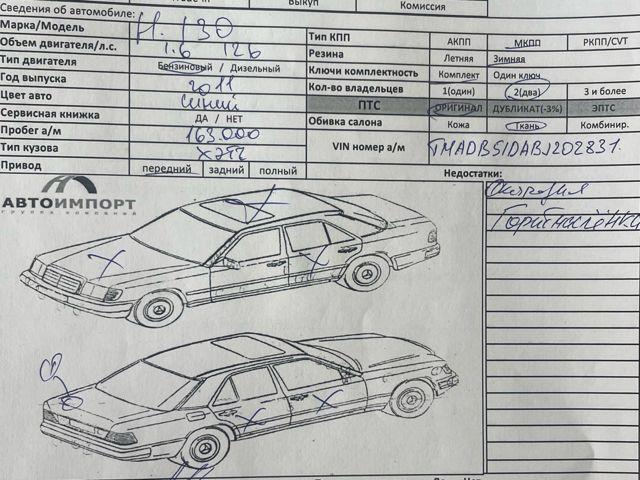 Выкуп Комиссия
Сведения об автомобиле:
Марка/Модель H. i30 Тип КПП АКПП МКПП РКПП/CVT
Объем двигателя/л.с. 1.6 126 Резина Летняя Зимняя
Тип двигателя Бензиновый / Дизельный Ключи комплектность Комплект Один ключ
Год выпуска 2011 Кол-во владельцев 1(один) 2(два) 3 и более
Цвет авто Синий ПТС ОРИГИНАЛ ДУБЛИКАТ(-3%) ЭПТС
Сервисная книжка ДА / НЕТ Обивка салона Кожа Ткань Комбинир.
Пробег а/м 163.000 VIN номер а/м TMADB51DABJ202831.
Тип кузова ХЭТЧ
Привод передний задний полный Недостатки:
АВТОИМПОРТ
группа компаний